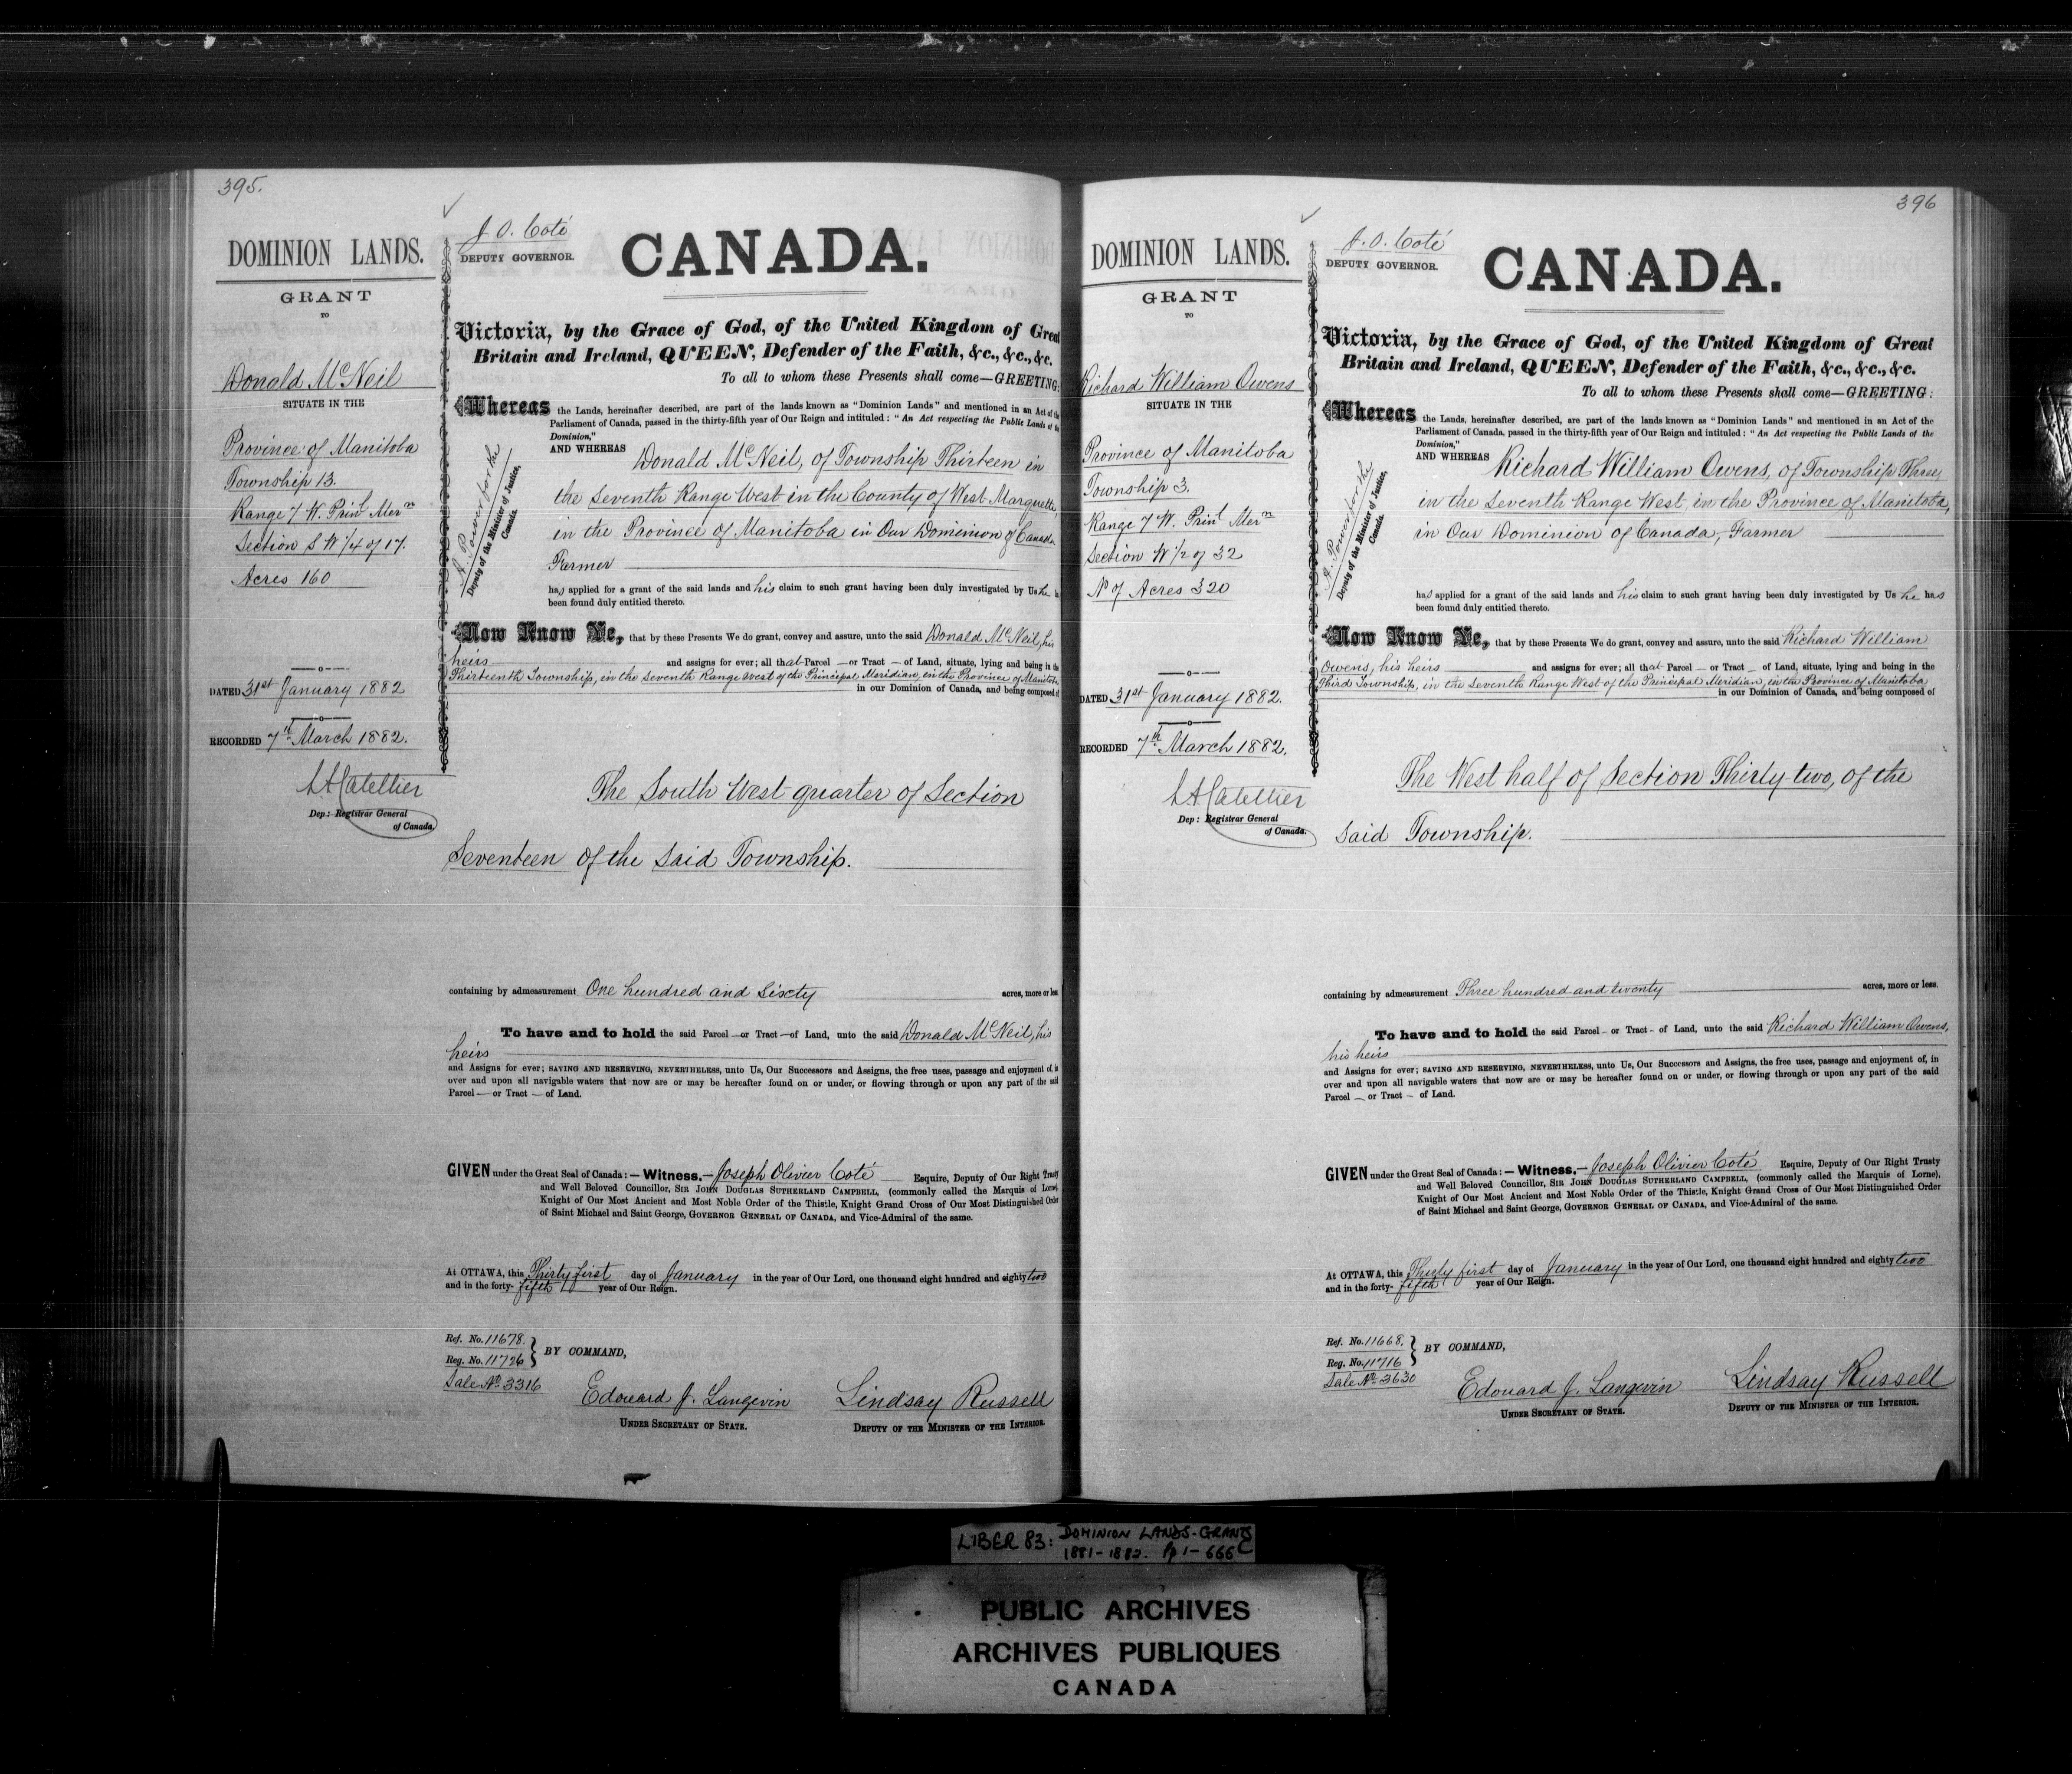 395.
DOMINION LANDS.
GRANT
TO
Donald McNeil
SITUATE IN THE
Province of Manitoba
Township 13.
Range 7 W. Prinl Mern
Section S W 1/4 of 17.
Acres 160
DATED 31st January 1882
RECORDED 7th March 1882.
LA Catellier
Dep: Registrar General
of Canada.
J. O. Coté
DEPUTY GOVERNOR.
CANADA.
Victoria, by the Grace of God, of the United Kingdom of Great
Britain and Ireland, QUEEN, Defender of the Faith, &c., &c., &c.
To all to whom these Presents shall come—GREETING:
A. Power for the
Deputy of the Minister of Justice,
Canada.
Whereas the Lands, hereinafter described, are part of the lands known as "Dominion Lands" and mentioned in an Act of the
Parliament of Canada, passed in the thirty-fifth year of Our Reign and intituled: "An Act respecting the Public Lands of the
Dominion,"
AND WHEREAS Donald McNeil, of Township Thirteen in
the Seventh Range West in the County of West Marquette,
in the Province of Manitoba in Our Dominion of Canada,
Farmer
has applied for a grant of the said lands and his claim to such grant having been duly investigated by Us he h
been found duly entitled thereto.
Now Know Ye, that by these Presents We do grant, convey and assure, unto the said Donald McNeil, his
heirs and assigns for ever; all that Parcel — or Tract — of Land, situate, lying and being in the
Thirteenth Township, in the Seventh Range West of the Principal Meridian, in the Province of Manitoba
in our Dominion of Canada, and being composed of
The South West quarter of Section
Seventeen of the said Township.
containing by admeasurement One hundred and Sixty acres, more or less
To have and to hold the said Parcel — or Tract — of Land, unto the said Donald McNeil, his
heirs
and Assigns for ever; SAVING AND RESERVING, NEVERTHELESS, unto Us, Our Successors and Assigns, the free uses, passage and enjoyment of, in
over and upon all navigable waters that now are or may be hereafter found on or under, or flowing through or upon any part of the said
Parcel — or Tract — of Land.
GIVEN under the Great Seal of Canada:—Witness,—Joseph Olivier Coté Esquire, Deputy of Our Right Trusty
and Well Beloved Councillor, SIR JOHN DOUGLAS SUTHERLAND CAMPBELL, (commonly called the Marquis of Lorne),
Knight of Our Most Ancient and Most Noble Order of the Thistle, Knight Grand Cross of Our Most Distinguished Order
of Saint Michael and Saint George, GOVERNOR GENERAL OF CANADA, and Vice-Admiral of the same.
At OTTAWA, this Thirty first day of January in the year of Our Lord, one thousand eight hundred and eighty two
and in the forty-fifth year of Our Reign.
Ref. No. 11678.
Reg. No. 11726
BY COMMAND,
Sale No 3316
Edouard J. Langevin
UNDER SECRETARY OF STATE.
Lindsay Russell
DEPUTY OF THE MINISTER OF THE INTERIOR.
396
DOMINION LANDS.
GRANT
TO
Richard William Owens
SITUATE IN THE
Province of Manitoba
Township 3.
Range 7 W. Prinl Mern
Section W 1/2 of 32
No of Acres 320
DATED 31st January 1882.
RECORDED 7th March 1882.
LA Catellier
Dep: Registrar General
of Canada.
J. O. Coté
DEPUTY GOVERNOR.
CANADA.
Victoria, by the Grace of God, of the United Kingdom of Great
Britain and Ireland, QUEEN, Defender of the Faith, &c., &c., &c.
To all to whom these Presents shall come—GREETING:
A. Power for the
Deputy of the Minister of Justice,
Canada.
Whereas the Lands, hereinafter described, are part of the lands known as "Dominion Lands" and mentioned in an Act of the
Parliament of Canada, passed in the thirty-fifth year of Our Reign and intituled: "An Act respecting the Public Lands of the
Dominion,"
AND WHEREAS Richard William Owens, of Township Three,
in the Seventh Range West, in the Province of Manitoba,
in Our Dominion of Canada, Farmer
has applied for a grant of the said lands and his claim to such grant having been duly investigated by Us he has
been found duly entitled thereto.
Now Know Ye, that by these Presents We do grant, convey and assure, unto the said Richard William
Owens, his heirs and assigns for ever; all that Parcel — or Tract — of Land, situate, lying and being in the
Third Township, in the Seventh Range West of the Principal Meridian, in the Province of Manitoba
in our Dominion of Canada, and being composed of
The West half of Section Thirty-two, of the
said Township.
containing by admeasurement Three hundred and twenty acres, more or less.
To have and to hold the said Parcel — or Tract — of Land, unto the said Richard William Owens,
his heirs
and Assigns for ever; SAVING AND RESERVING, NEVERTHELESS, unto Us, Our Successors and Assigns, the free uses, passage and enjoyment of, in
over and upon all navigable waters that now are or may be hereafter found on or under, or flowing through or upon any part of the said
Parcel — or Tract — of Land.
GIVEN under the Great Seal of Canada:—Witness,—Joseph Olivier Coté Esquire, Deputy of Our Right Trusty
and Well Beloved Councillor, SIR JOHN DOUGLAS SUTHERLAND CAMPBELL, (commonly called the Marquis of Lorne),
Knight of Our Most Ancient and Most Noble Order of the Thistle, Knight Grand Cross of Our Most Distinguished Order
of Saint Michael and Saint George, GOVERNOR GENERAL OF CANADA, and Vice-Admiral of the same.
At OTTAWA, this Thirty first day of January in the year of Our Lord, one thousand eight hundred and eighty two
and in the forty-fifth year of Our Reign.
Ref. No. 11668.
Reg. No. 11716
BY COMMAND,
Sale No 3630
Edouard J. Langevin
UNDER SECRETARY OF STATE.
Lindsay Russell
DEPUTY OF THE MINISTER OF THE INTERIOR.
LIBER 83: DOMINION LANDS-GRANTS
1881-1882. Pp 1-666C
PUBLIC ARCHIVES
ARCHIVES PUBLIQUES
CANADA